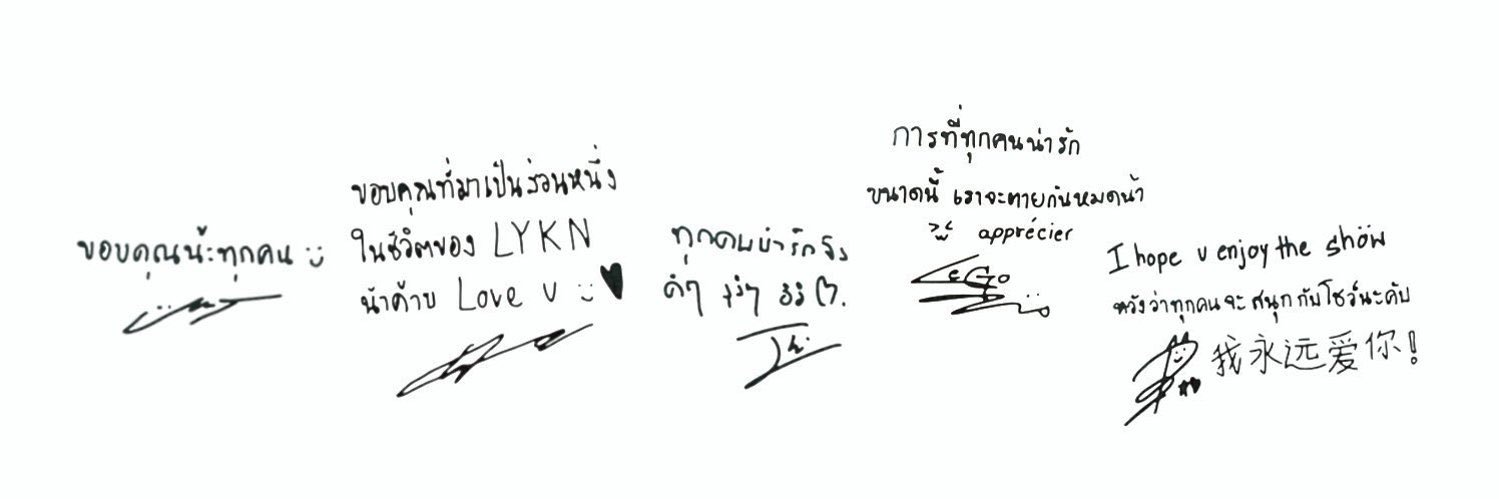 ขอบคุณน้ะทุกคน
ขอบคุณที่มาเป็นส่วนหนึ่ง
ในชีวิตของ LYKN
น้าค้าบ Love u
ทุกคนน่ารักจัง
การที่ทุกคนน่ารัก
ขนาดนี้ เราจะตายกันหมดน้า
apprécier
LEGo
I hope u enjoy the show
หวังว่าทุกคนจะสนุกกับโชว์นะคับ
我永远爱你!